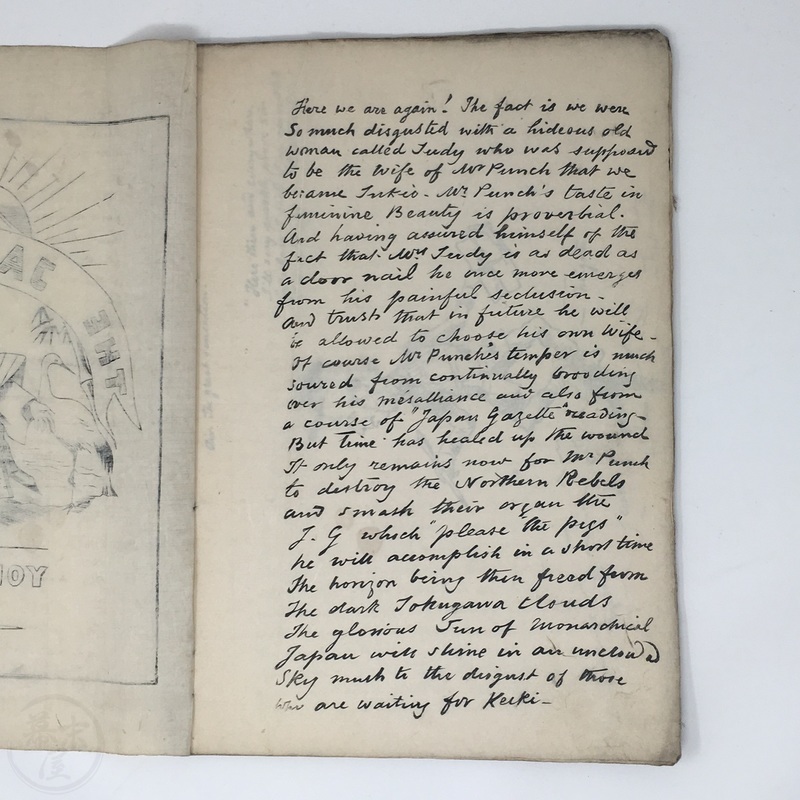 Here we are again! The fact is we were
So much disgusted with a hideous old
woman called Judy who was supposed
to be the wife of Mr Punch that we
became Inkio. Mr. Punch's taste in
feminine Beauty is proverbial.
And having assured himself of the
fact that Mrs Judy is as dead as
a door nail he once more emerges
from his painful seclusion -
and trusts that in future he will
be allowed to choose his own wife -
Of course Mr Punch's temper is much
soured from continually brooding
over his mésalliance and also from
a course of "Japan Gazette" reading -
But time has healed up the wound
It only remains now for Mr Punch
to destroy the Northern Rebels
and smash their organ the
J. G which "please the pigs"
he will accomplish in a short time
The horizon being then freed from
The dark Tokugawa clouds
The glorious Sun of Monarchical
Japan will shine in an unclouded
Sky much to the disgust of those
who are waiting for Keiki -
THE